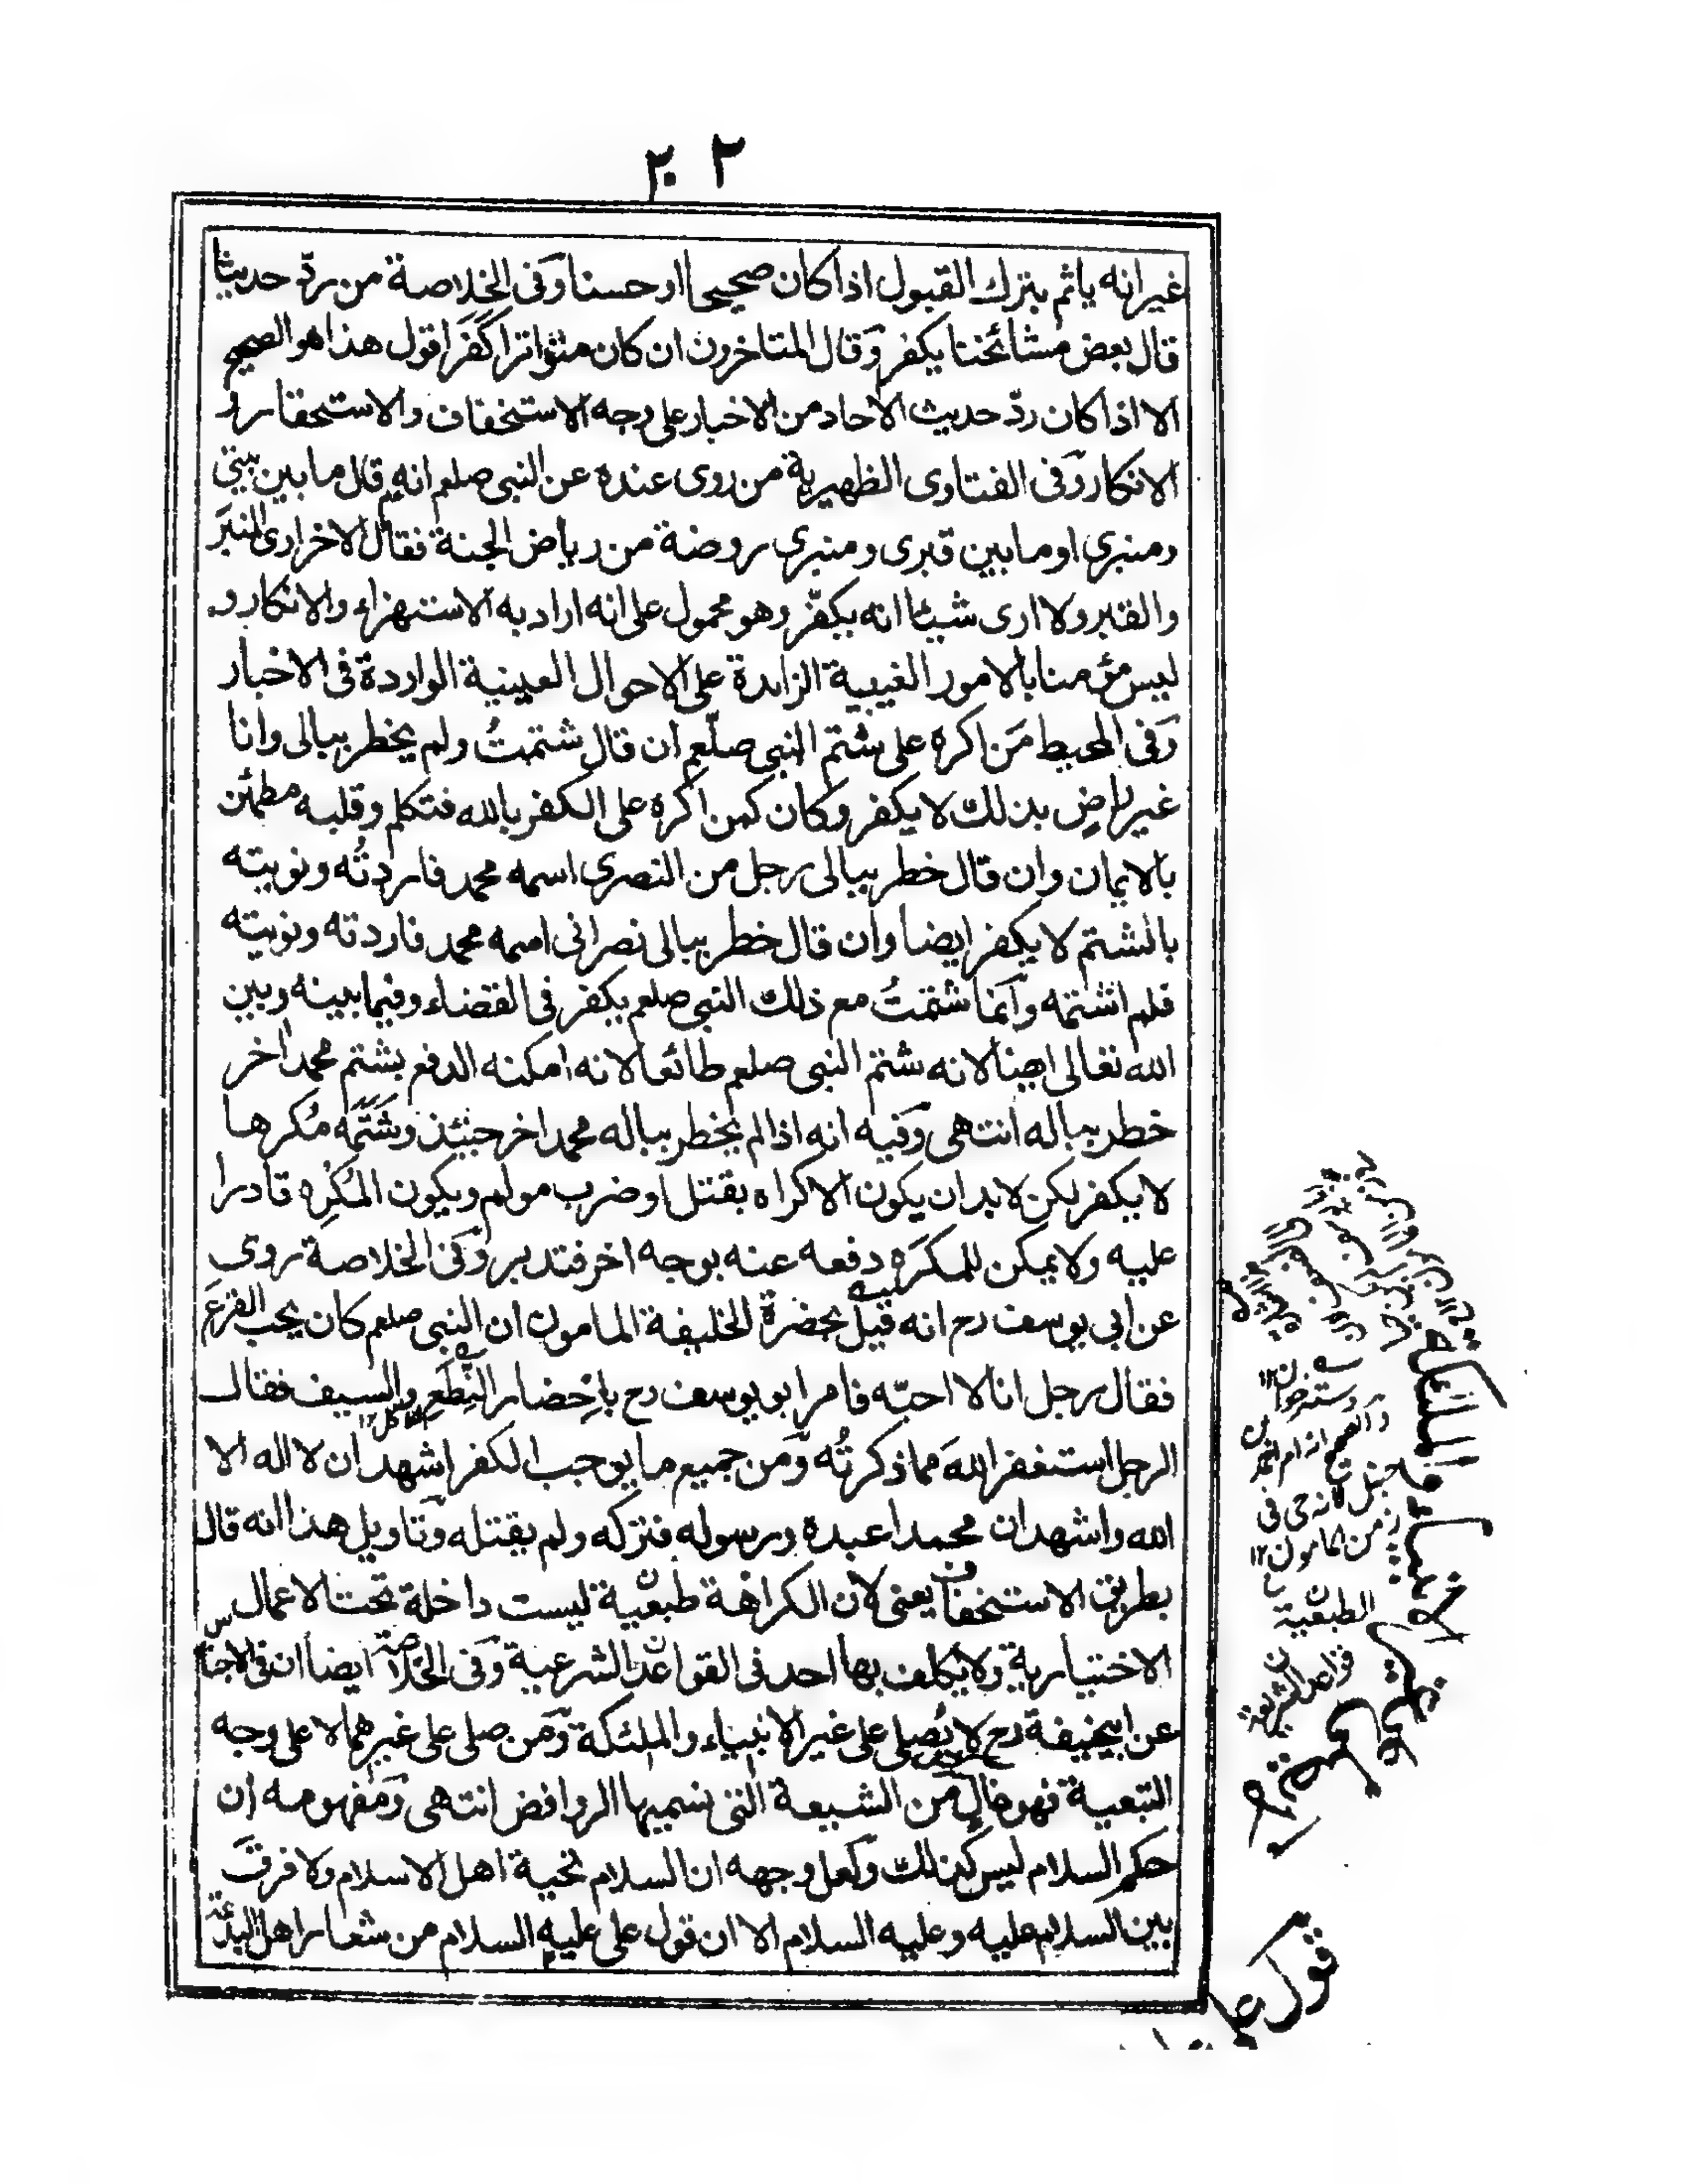 ٢٠٢
غير انه ياثم بترك القبول اذا كان صحيحا او حسنا وفى الخلاصة من ردّ حديثا
قال بعض مشائخنا يكفر وقال المتاخرون ان كان متواترا كفر اقول هذا هو الصحيح
الا اذا كان ردّ حديث الاحاد من الاخبار على وجه الاستخفاف والاستحقار و
الانكار وفى الفتاوى الظهيرية من روى عنده عن النبى صلعم انه قال ما بين بيتى
ومنبرى او ما بين قبرى ومنبرى روضة من رياض الجنة فقال الاخر ارى المنبر
والقبر ولا ارى شيئا انه يكفّر وهو محمول على انه اراد به الاستهزاء والانكار و
ليس مؤمنا بالامور الغيبية الزايدة على الاحوال العينية الواردة فى الاخبار
وفى المحيط من اكره على شتم النبى صلّعم ان قال شتمتُ ولم يخطر ببالى وانا
غير راضٍ بذلك لا يكفر وكان كمن اكره على الكفر بالله فتكلم وقلبه مطمئن
بالايمان وان قال خطر ببالى رجل من النصرى اسمه محمد فاردتُه ونويته
بالشتم لا يكفر ايضا وان قال خطر ببالى نصرانى اسمه محمد فاردته ونويته
فلم اشتمه وانما شتمتُ مع ذلك النبى صلعم يكفر فى القضاء وفيما بينه وبين
الله تعالى ايضا لانه شتم النبى صلعم طائعا لانه امكنه الدفع بشتم محمد اخر
خطر بباله انتهى وفيه انه اذا لم يخطر بباله محمد اخر حينئذ وشَتَمَه مُكرها
لا يكفر لكن لا بد ان يكون الاكراه بقتل او ضرب مولم ويكون المُكرِه قادرا
عليه ولا يمكن للمكرَه دفعه عنه بوجه اخر فتدبر وفى الخلاصة روى
عن ابى يوسف رح انه قيل بحضرة الخليفة المامون ان النبى صلعم كان يحب القرع
فقال رجل انا لا احبّه فامر ابو يوسف رح باِحْضار النِطَعِ والسيف فقال
الرجل استغفر اللهَ مما ذكرتُه ومن جميع ما يوجب الكفر اشهد ان لا اله الا
الله واشهد ان محمدا عبده ورسوله فتركه ولم يقتله وتاويل هذا انه قال
بطريق الاستخفاف يعنى لان الكراهة طبعية ليست داخلة تحت الاعمال
الاختيارية ولا يكلف بها احد فى القواعد الشرعية وفى الخلاصة ايضا ان فى الاجناس
عن ابيحنيفة رح لا يُصلى على غير الانبياء والملئكة ومن صلى على غيرهما لا على وجه
التبعية فهو غالٍ من الشيعة التى نسميها الروافض انتهى ومفهومه ان
حكم السلام ليس كذلك ولعل وجهه ان السلام تحية اهل الاسلام ولا فرق
بين السلام عليه وعليه السلام الا ان قول على عليه السلام من شعار اهل البدعة
الطبعية
قواعد الشريعة